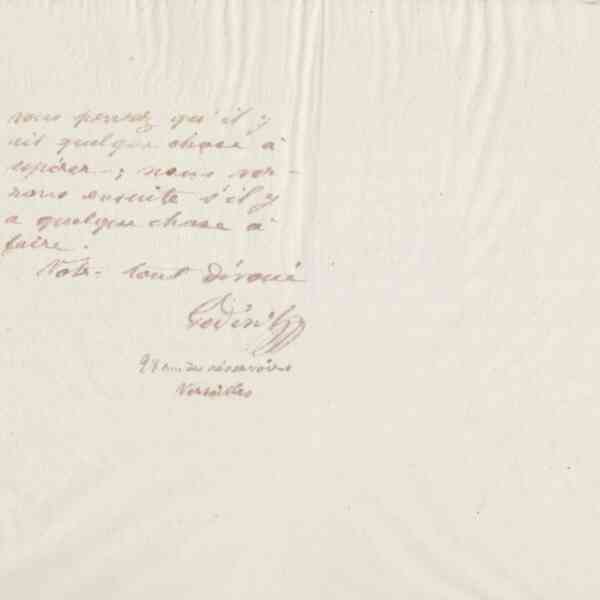 vous pensez qu'il y
ait quelque chose à
espérer; nous ver-
rons ensuite s'il y
a quelque chose à
faire.
Votre tout dévoué
rue des réservoirs
Versailles